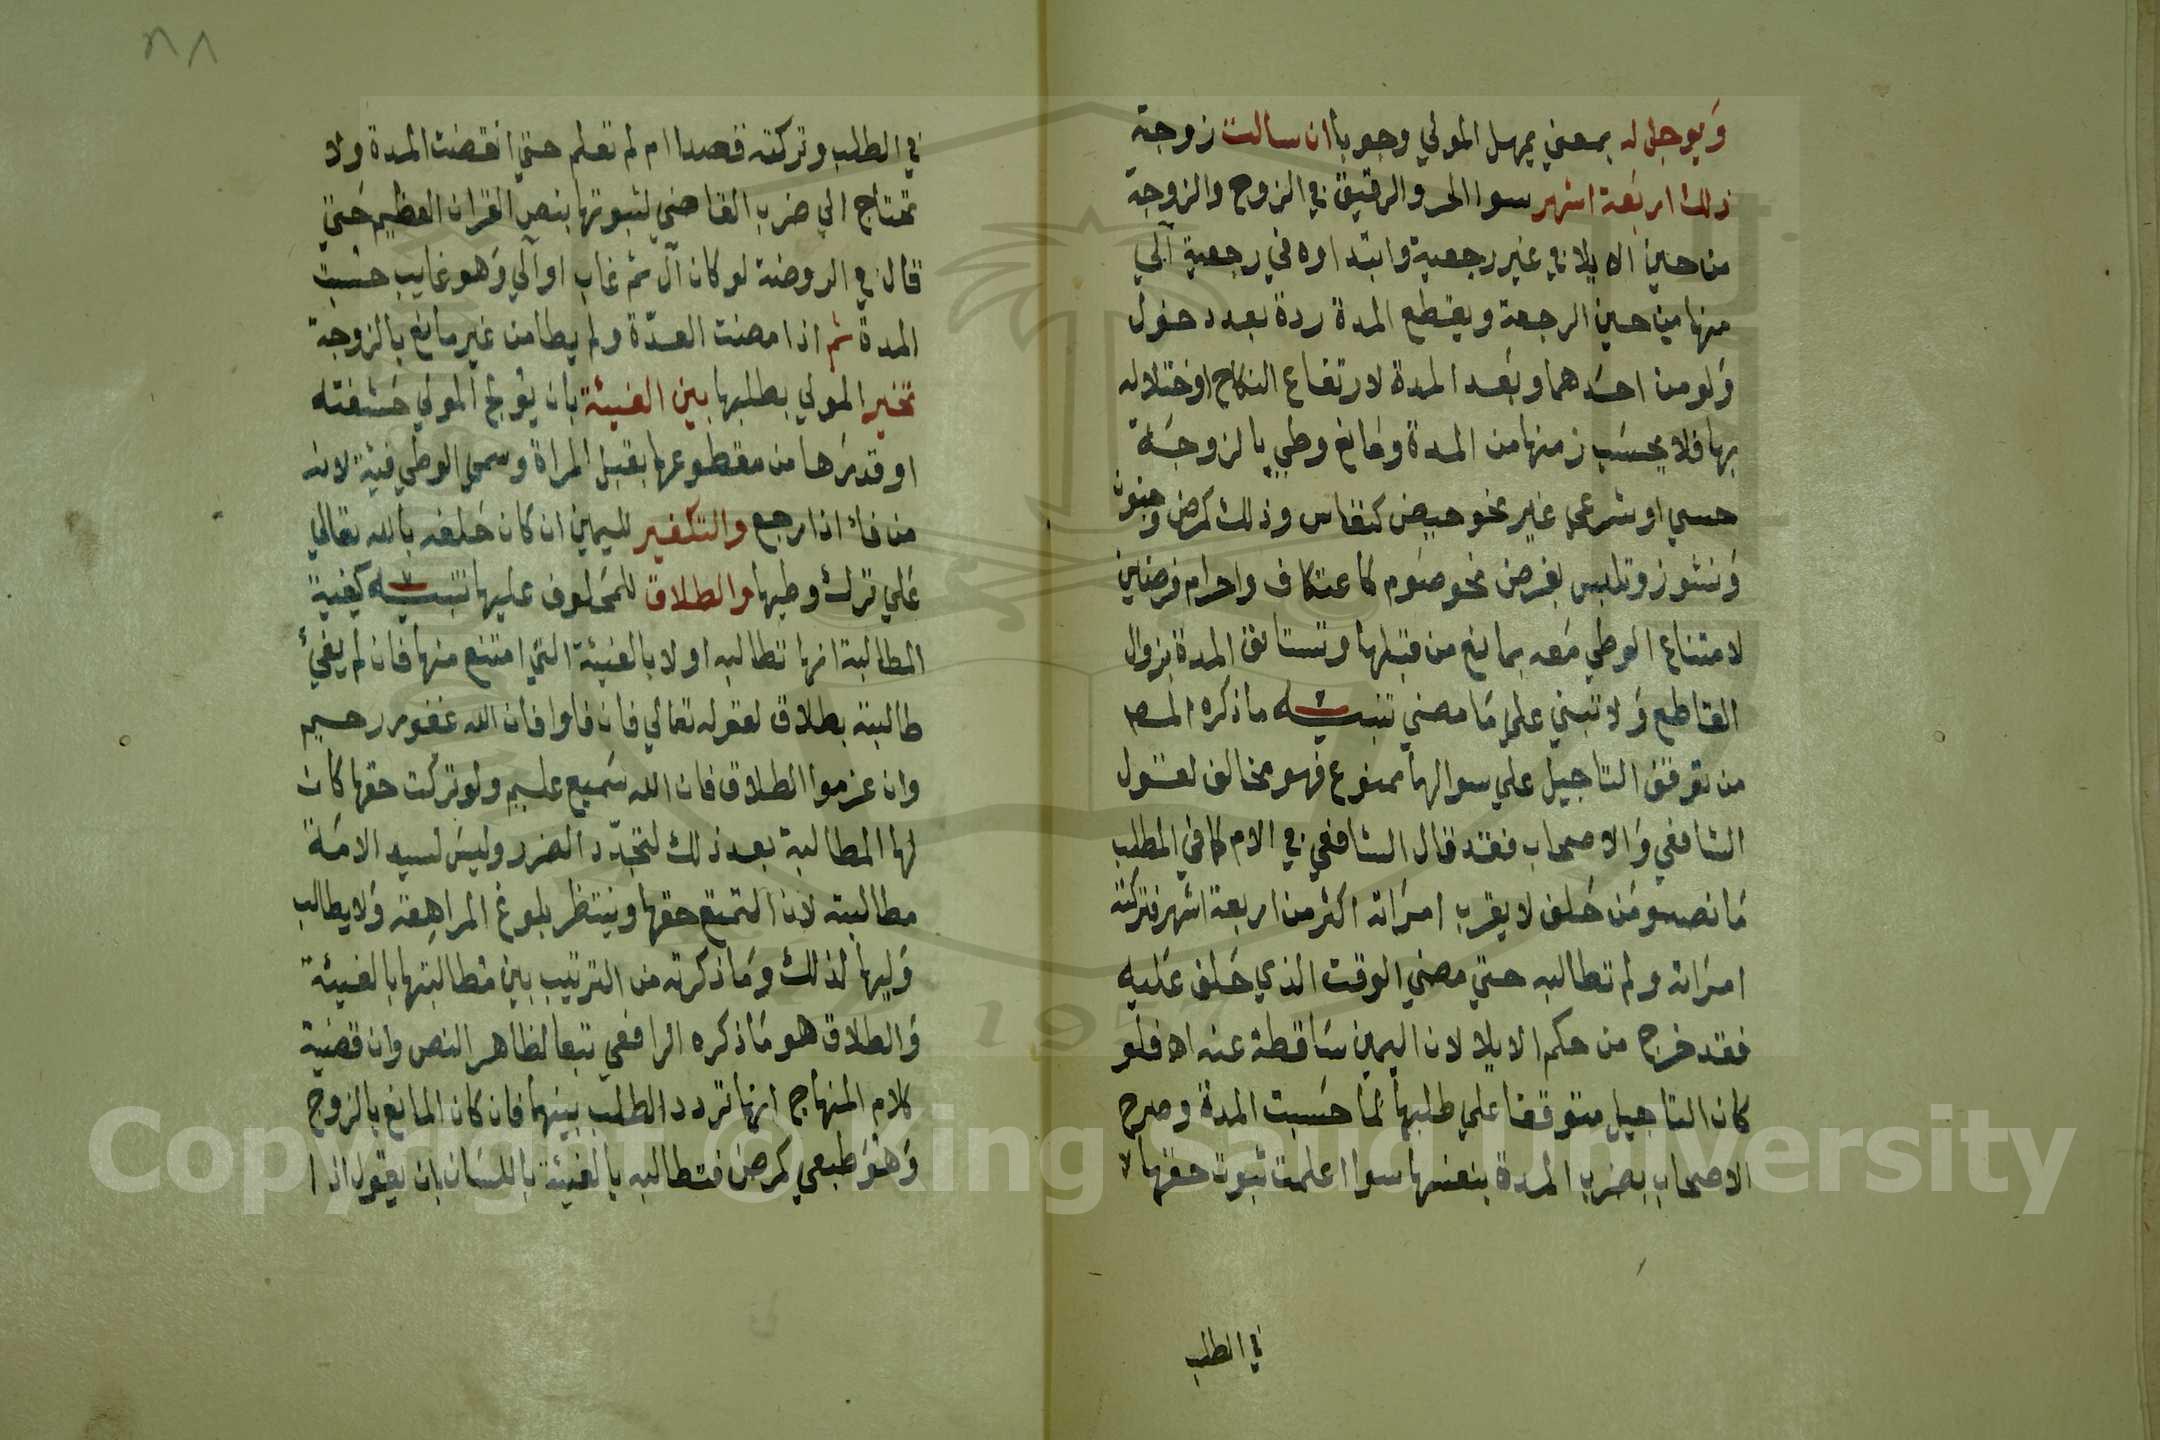 ويوجل له بمعني يمهل المولي وجوبا ان سالت زوجة
ذلك اربعة اشهر سوا الحر والرقيق في الزوج والزوجة
من حين الايلا في غير رجعية وابتداوه في رجعية آلي
منها من حين الرجعة ويقطع المدة ردة بعد دخول
ولو من احدهما وبعد المدة لارتفاع النكاح او ختلاله
بها فلا يحسب زمنها من المدة ومانع وطي بالزوجة
حسي او شرعي غير نحو حيض كنفاس وذلك كمرض وجنون
ونشوز وتلبس بفرض نحو صوم كاعتكاف واحرام فرضين
لامتناع الوطي معه بمانع من قبلها وتستانف المدة بزوال
القاطع ولا تبني علي ما مضي تنبيه ما ذكره المص
من توقف التاجيل علي سوالها ممنوع فهو مخالف لقول
الشافعي والاصحاب فقد قال الشافعي في الام كما في المطلب
ما نصه ومن حلف لا يقرب امراته اكثر من اربعة اشهر فتركته
امراته ولم تطالبه حتي مضي الوقت الذي حلف عليه
فقد خرج من حكم الايلا لان اليمين ساقطة عنه اه فلو
كان التاجيل متوقفا علي طلبها لما حسبت المدة وصرح
الاصحاب بضرب المدة بنفسها سوا اعلمت ثبوت حقها
في الطلب
٨٨
في الطلب وتركته قصدا ام لم تعلم حتي انقضت المدة ولا
تحتاج الي ضرب القاضي لثبوتها بنص القران العظيم حتي
قال في الروضة لو كان آل ثم غاب او آلي وهو غايب حسبت
المدة ثم اذا مضت العدّة ولم يطا من غير مانع بالزوجة
تخير المولي بطلبها بين الفيئة بان يولج المولي حشفته
او قدرها من مقطوعها بقبل المراة وسمي الوطي فيئة لانه
من فاء اذا رجع والتكفير لليمين ان كان حلفه بالله تعالي
علي ترك وطيها والطلاق للمحلوف عليها تنبيه كيفية
المطالبة انها تطالبه اولا بالفيئة التي امتنع منها فان لم يفئ
طالبته بطلاق لقوله تعالي فان فاوا فان الله غفور رحيم
وان عزموا الطلاق فان الله سميع عليم ولو تركت حقها كان
لها المطالبة بعد ذلك لتجدّد الضرر وليس لسيد الامة
مطالبته لان التمتع حقها وينتظر بلوغ المراهقة ولا يطالب
وليها لذلك وما ذكرته من الترتيب بين مطالبتها بالفيئة
والطلاق هو ما ذكره الرافعي تبعا لظاهر النص وان قضية
كلام المنهاج انها تردد الطلب بينهما فان كان المانع بالزوج
وهو طبعي كمرض فتطالبه بالفيئة باللسان بان يقول اذا
Copyright © King Saud University
1957